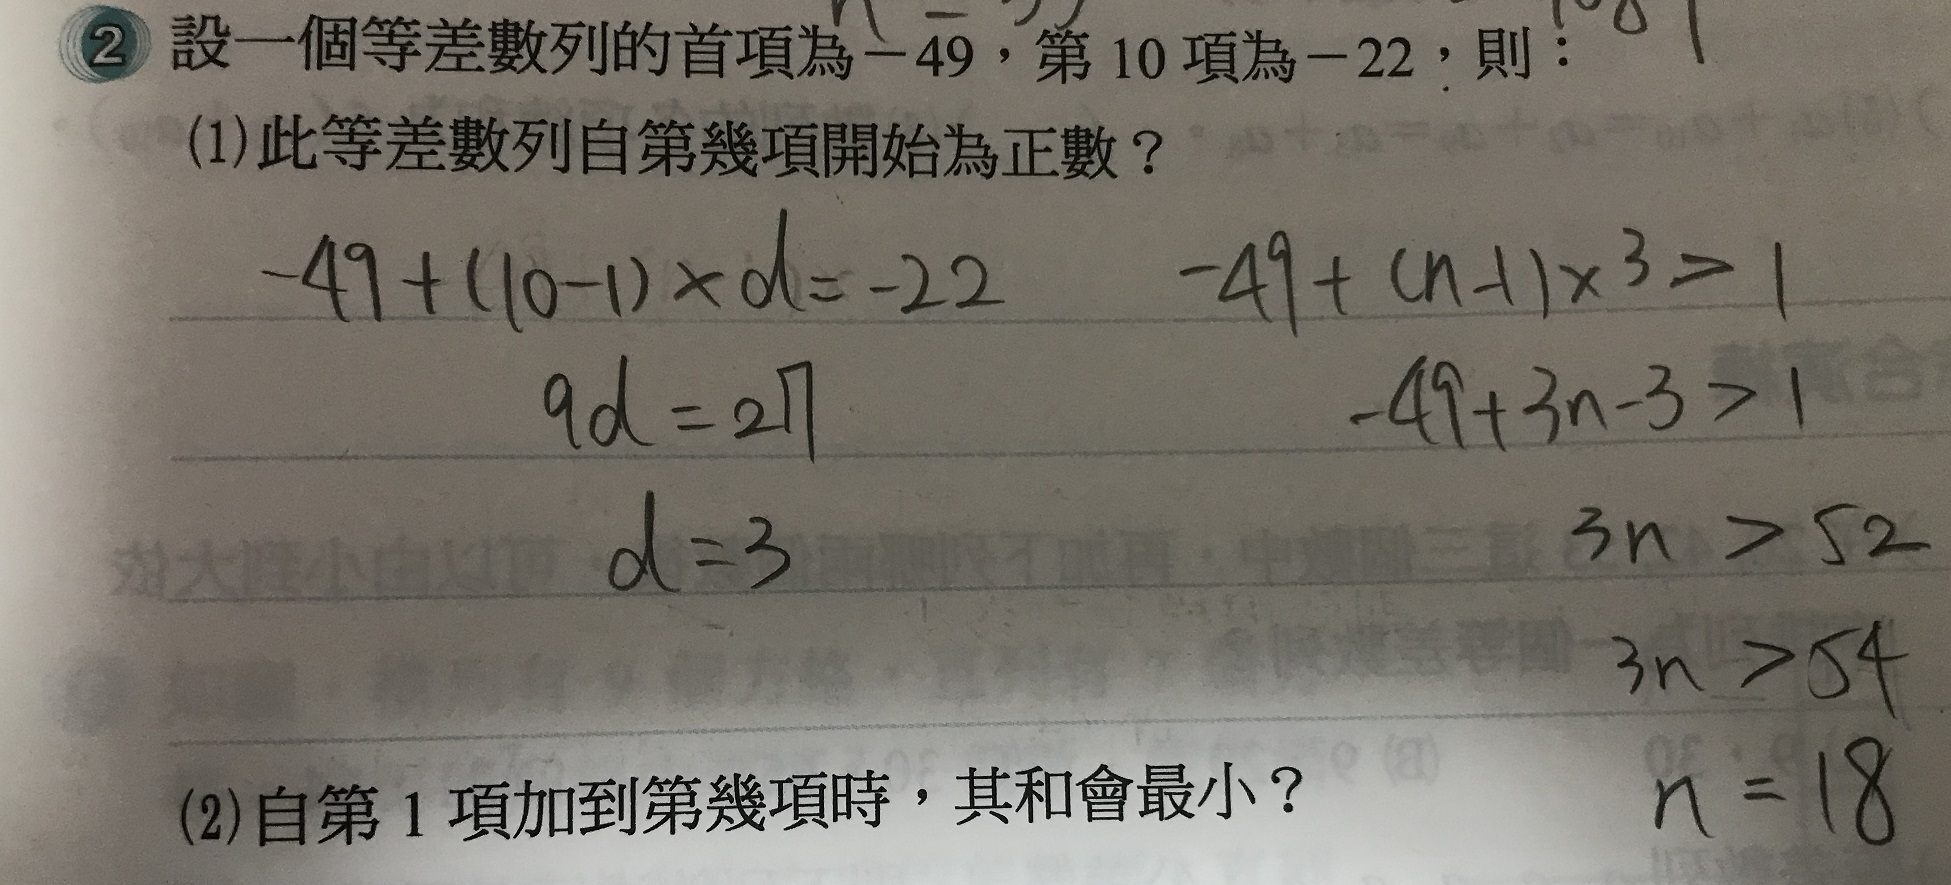 2 設一個等差數列的首項為－49，第 10 項為－22，則：
(1)此等差數列自第幾項開始為正數？
-49+(10-1)×d=-22
9d=27
d=3
-49+(n-1)×3>1
-49+3n-3>1
3n>52
3n>54
n=18
(2)自第 1 項加到第幾項時，其和會最小？